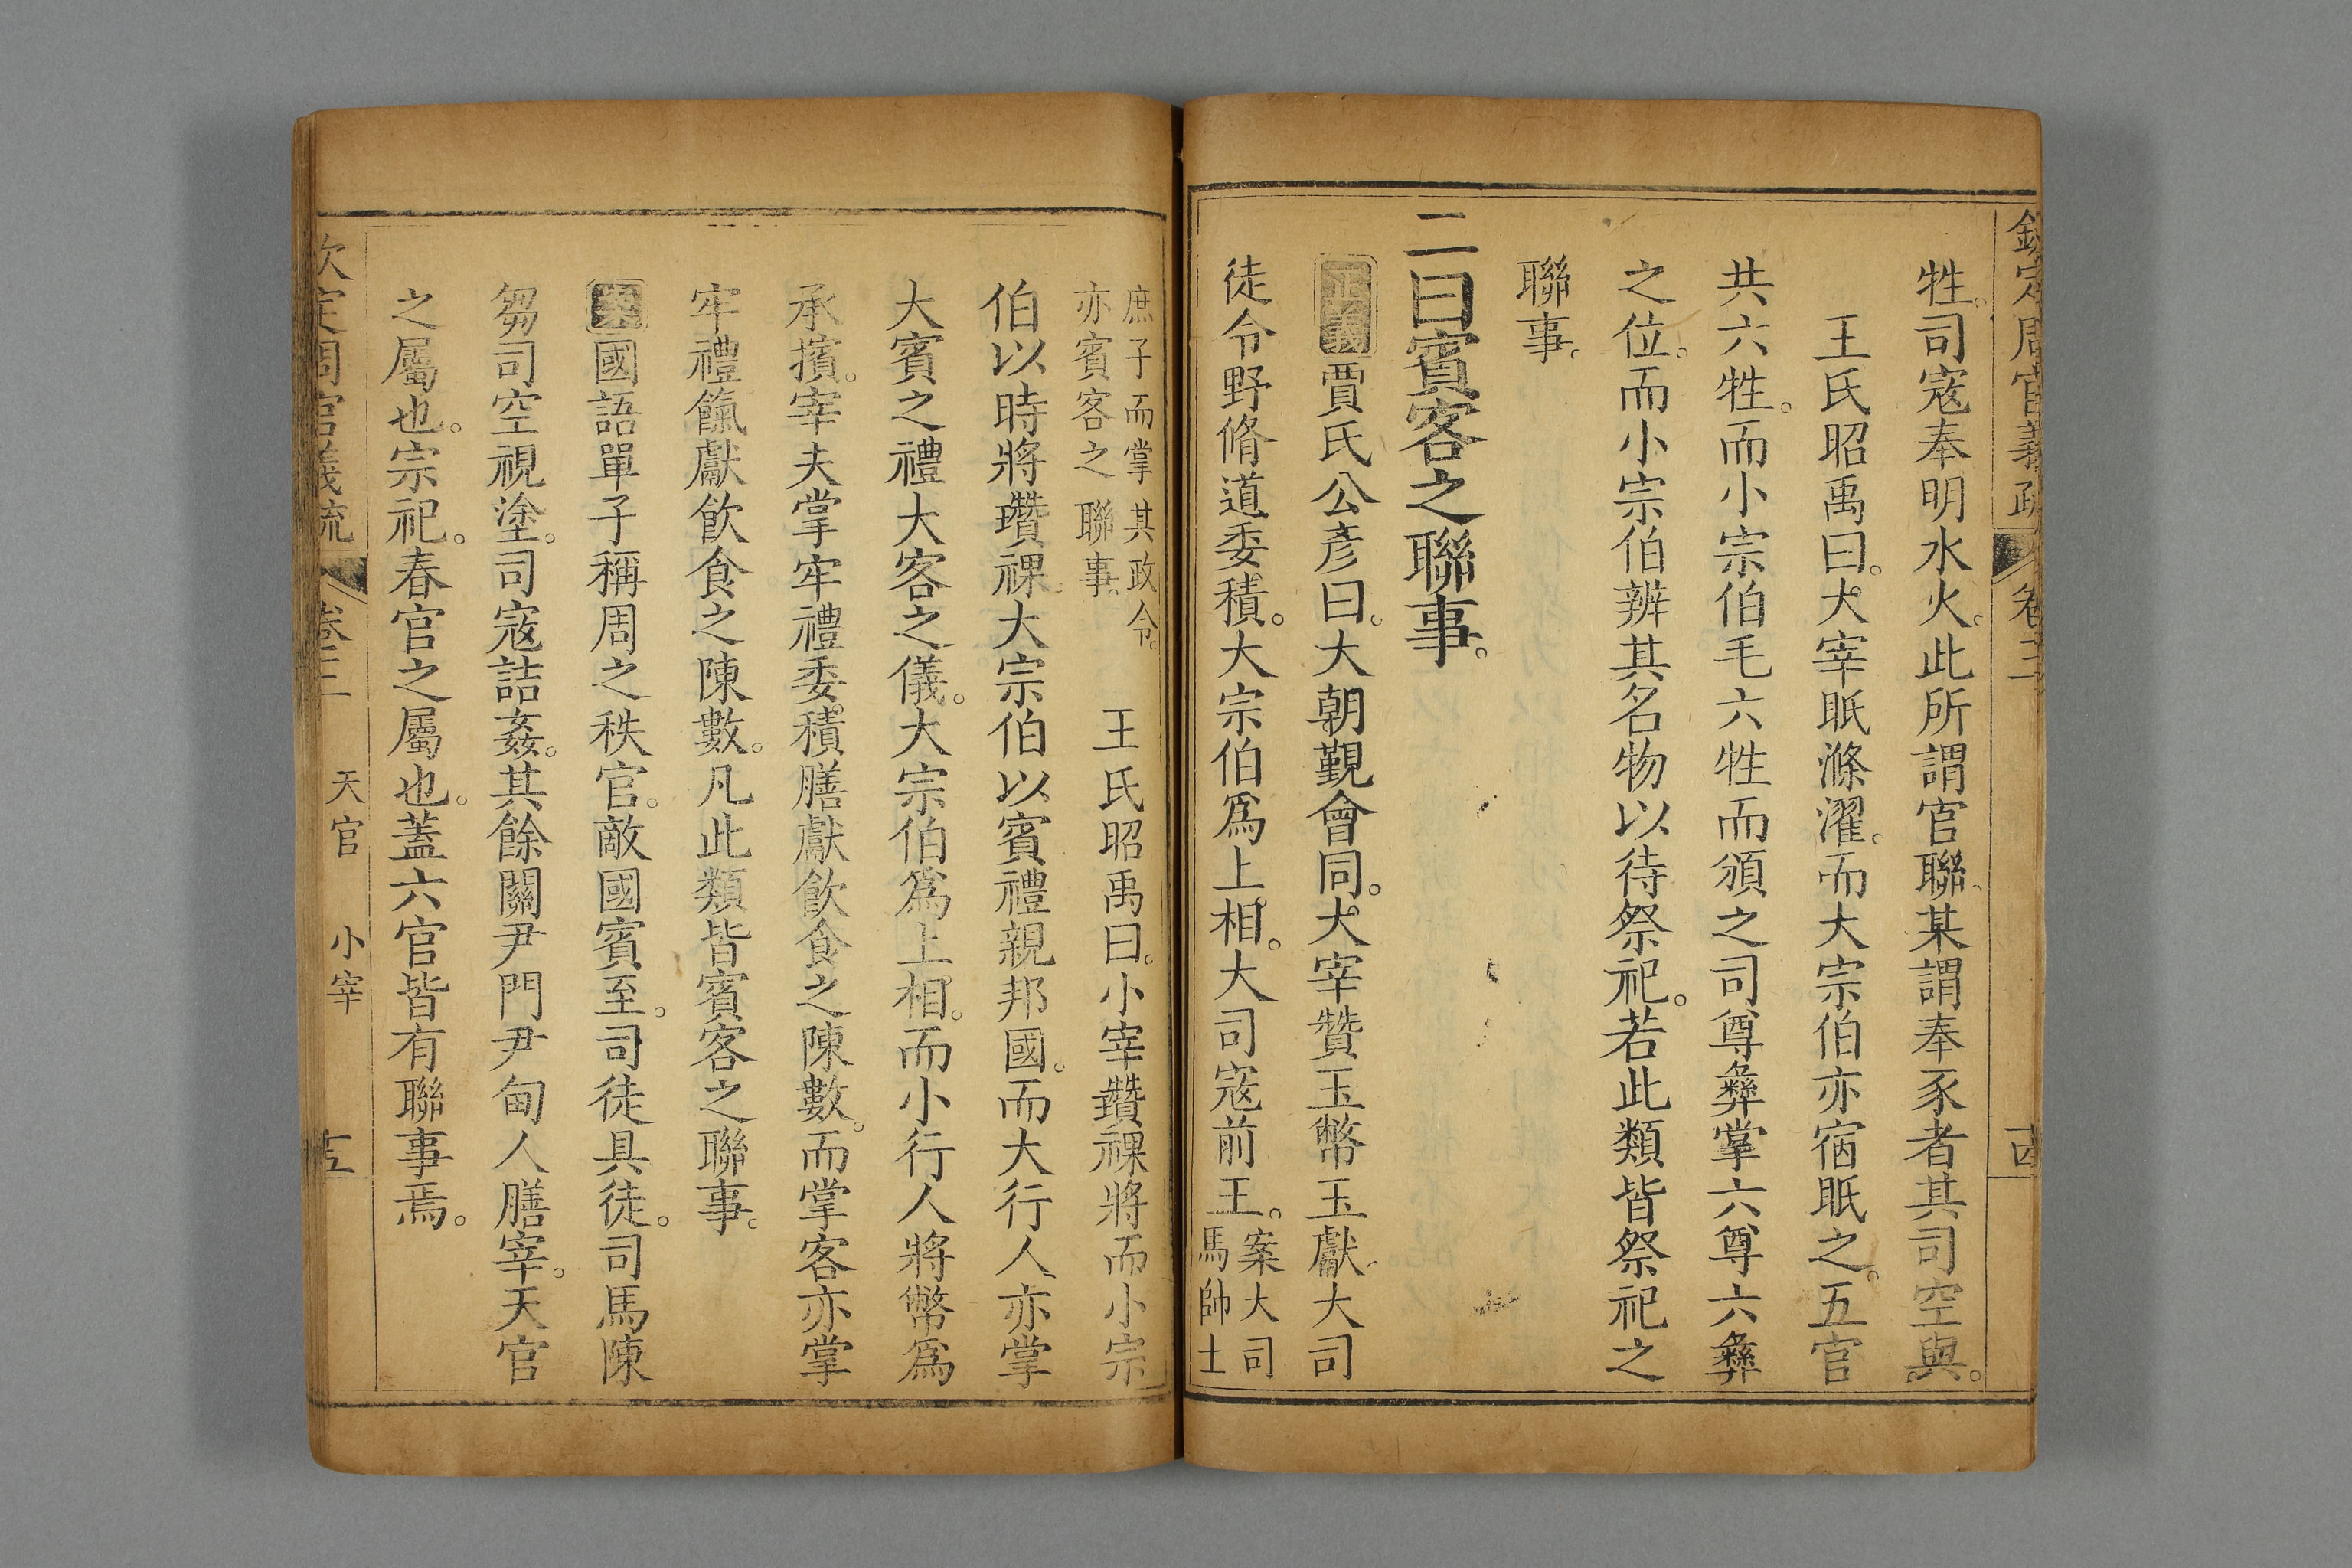 欽定周官義疏 卷三 十四
牲。司寇奉明水火。此所謂官聯。某謂奉豕者其司空與。
王氏昭禹曰。大宰眡滌濯。而大宗伯亦宿眡之。五官
共六牲。而小宗伯毛六牲而頒之司尊彝掌六尊六彝
之位。而小宗伯辨其名物以待祭祀。若此類皆祭祀之
聯事。
二曰賓客之聯事。
正義賈氏公彥曰。大朝覲會同。大宰贊玉幣玉獻。大司
徒令野脩道委積。大宗伯爲上相。大司寇前王。案大司
馬帥士
庶子而掌其政令。
亦賓客之聯事。 王氏昭禹曰。小宰贊祼將而小宗
伯以時將瓚祼。大宗伯以賓禮親邦國。而大行人亦掌
大賓之禮大客之儀。大宗伯爲上相。而小行人將幣爲
承擯。宰夫掌牢禮委積膳獻飲食之陳數。而掌客亦掌
牢禮餼獻飲食之陳數。凡此類皆賓客之聯事。
案國語單子稱周之秩官。敵國賓至。司徒具徒。司馬陳
芻司空視塗。司寇詰姦。其餘關尹門尹甸人膳宰。天官
之屬也。宗祀。春官之屬也。蓋六官皆有聯事焉。
欽定周官義疏 卷三 天官 小宰 十五